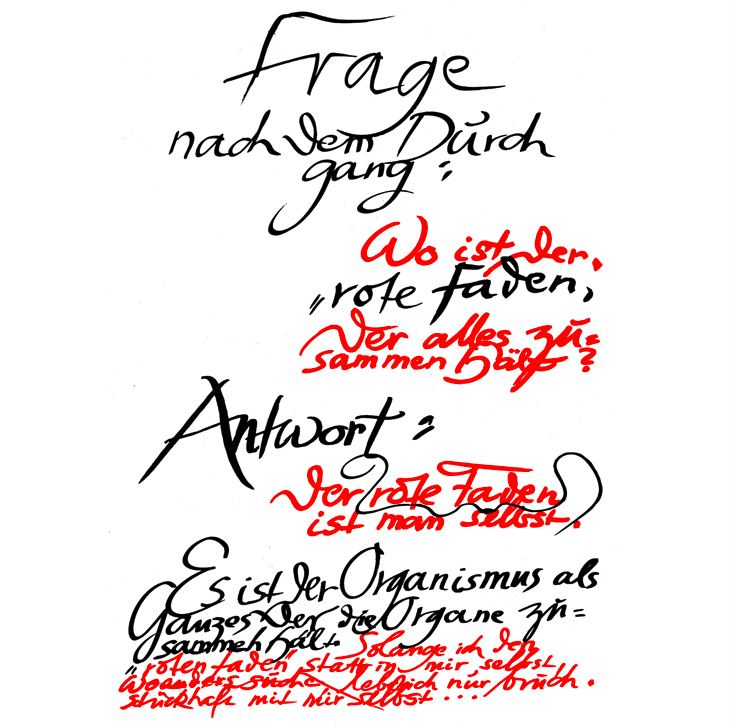 Frage
nach dem Durch
gang:
Wo ist der
"rote Faden,
der alles zu=
sammen hält?
Antwort:
Der rote Faden
ist man selbst.
Es ist der Organismus als
Ganzes der die Organe zu=
sammen hält. Solange ich den
"roten Faden" statt in mir selbst
woanders suche, leb ich nur bruch.
stückhaft mit mir selbst....